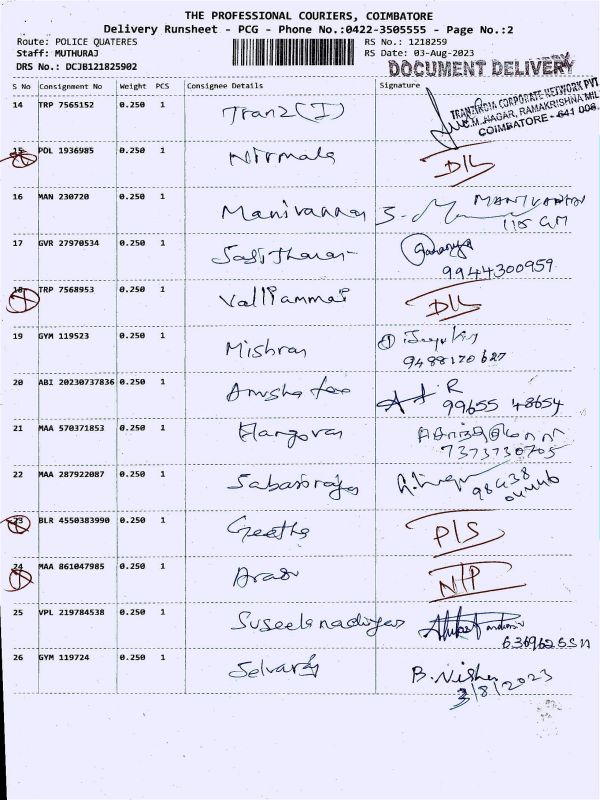 THE PROFESSIONAL COURIERS, COIMBATORE
Delivery Runsheet - PCG - Phone No.:0422-3505555 - Page No.:2
Route: POLICE QUATERES RS No.: 1218259
Staff: MUTHURAJ RS Date: 03-Aug-2023
DRS No.: DCJB121825902 DOCUMENT DELIVERY
S No Consignment No Weight PCS Consignee Details Signature
TRANZINDIA CORPORATE NETWORK PVT
C.M. NAGAR, RAMAKRISHNA MIL
COIMBATORE - 641 006
14 TRP 7565152 0.250 1 Tranz (I)
15 POL 1936985 0.250 1 Nirmala D/L
16 MAN 230720 0.250 1 Manivannan S. MANIVANNAN
17 GVR 27970534 0.250 1 Sasitharan
9944300959
18 TRP 7568953 0.250 1 Valliammai D/L
19 GYM 119523 0.250 1 Mishran
9488170627
20 ABI 20230737836 0.250 1 R
99655 48654
21 MAA 570371853 0.250 1 Elangovan
7373730705
22 MAA 287922087 0.250 1 98438
23 BLR 4550383990 0.250 1 Geetha P/S
24 MAA 861047985 0.250 1 Arasu N/P
25 VPL 219784538 0.250 1
26 GYM 119724 0.250 1 Selvaraj B. Nisha
3/8/2023